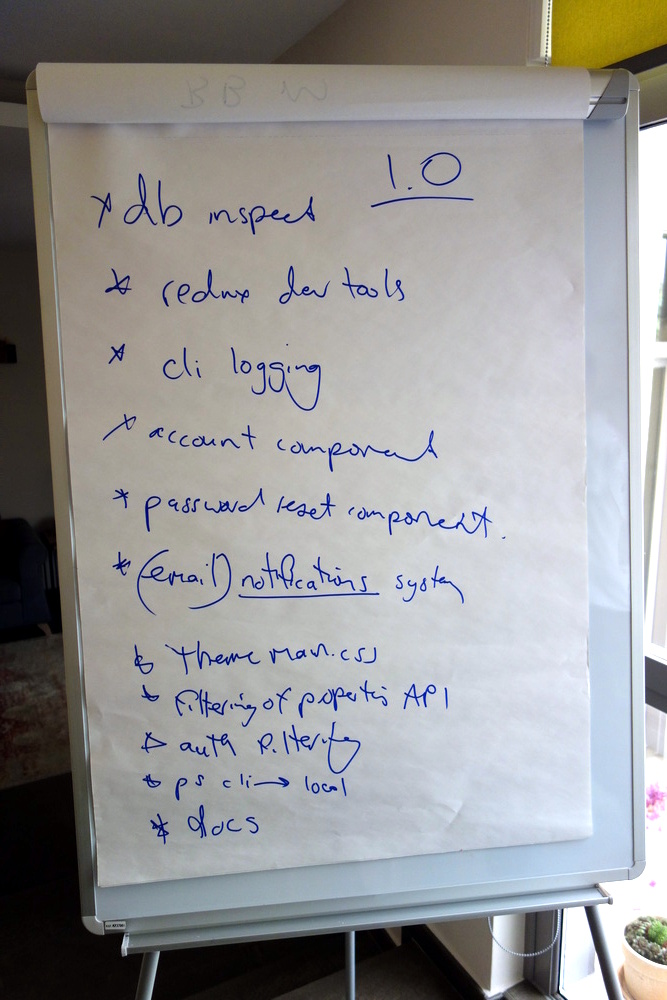 1.0
* db inspect
* redux dev tools
* cli logging
* account component
* password reset component.
* (email) notifications system
* theme main.css
* filtering of properties API
* auth filtering
* ps cli → local
* docs